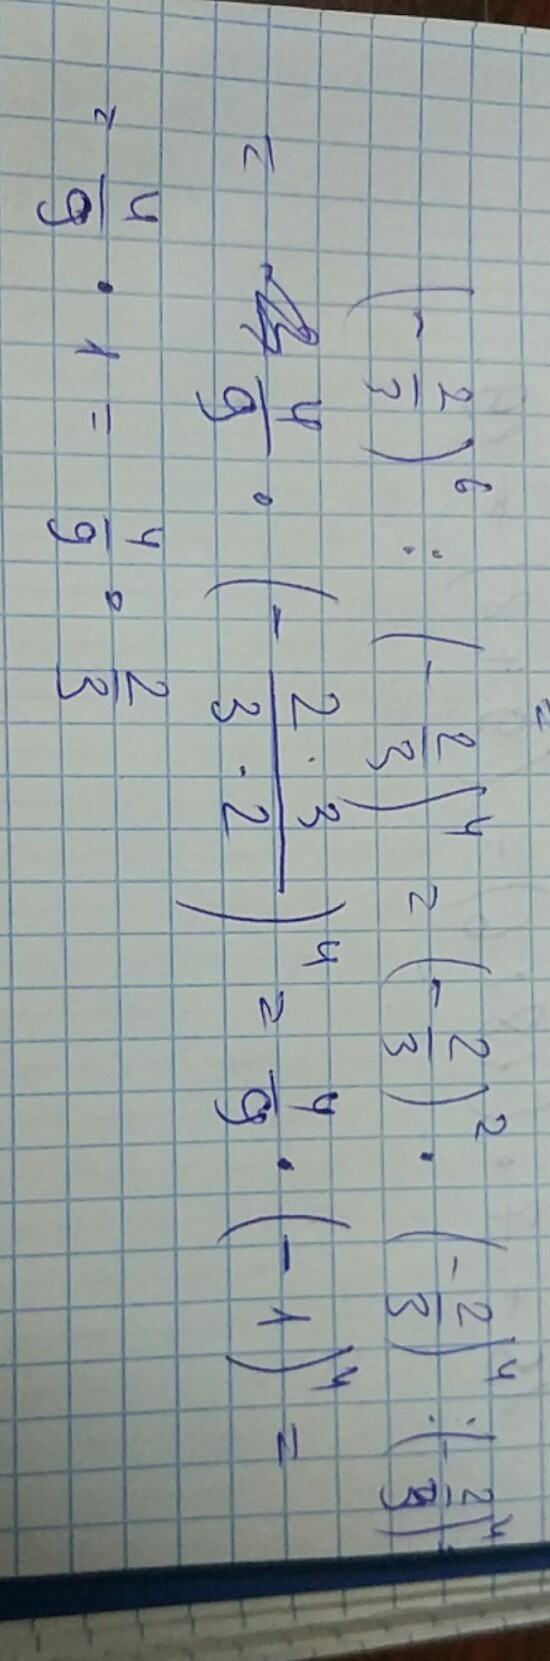 =
(-2/3)^6 : (-2/3)^4 = (-2/3)^2 · (-2/3)^4 : (-2/3)^4
= 4/9 · (- 2·3/3·2)^4 = 4/9 · (-1)^4 =
= 4/9 · 1 = 4/9 · 2/3